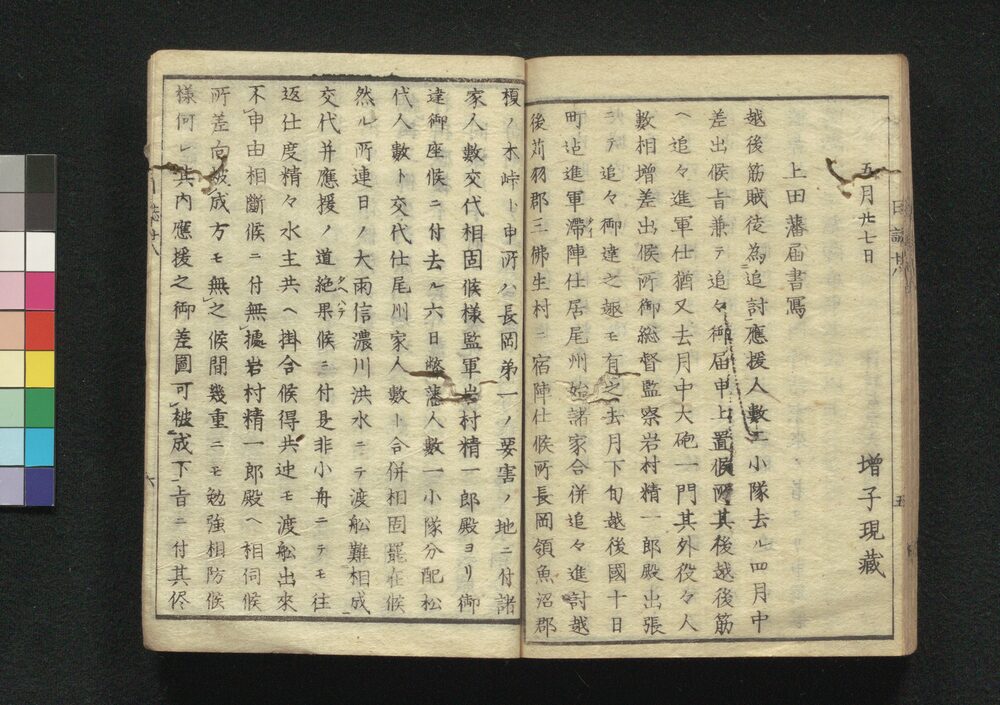 日誌廿八
五
五月廿七日
増子現藏
上田藩届書寫
越後筋賊徒為追討應援人數二小隊去ル四月中
差出候旨兼テ追々御届申上置候所其後越後筋
ヘ追々進軍仕猶又去月中大砲一門其外役々人
數相増差出候所御総督監察岩村精一郎殿出張
ニテ追々御達之趣モ有之去月下旬越後國十日
町迠進軍滞陣仕居尾州始諸家合併追々進討越
後苅羽郡三佛生村ニ宿陣仕候所長岡領魚沼郡
榎ノ木峠ト申所ハ長岡第一ノ要害ノ地ニ付諸
家人數交代相固候様監軍岩村精一郎殿ヨリ御
達御座候ニ付去ル六日弊藩人數一小隊分配松
代人數ト交代仕尾川家人數ト合併相固罷在候
然ル所連日ノ大雨信濃川洪水ニテ渡舩難相成
交代并應援ノ道絶果候ニ付是非小舟ニテモ往
返仕度精々水主共ヘ掛合候得共迚モ渡舩出來
不申由相斷候ニ付無據岩村精一郎殿ヘ相伺候
所差向被成方モ無之候間幾重ニモ勉強相防候
様何レ其内應援之御差圖可被成下旨ニ付其侭
誌廿八
六